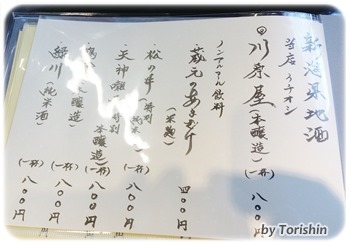 新潟県地酒
当店
川原屋(本醸造)(一杯)八〇〇円
ノンアルコール飲料
蔵元のあまざけ(米麹)四〇〇円
松の井(特別純米酒)(一杯)八〇〇円
天神囃子(特別本醸造)(一杯)八〇〇円
(本醸造)(一杯)八〇〇円
緑川(純米酒)(一杯)八〇〇円
by Torishin